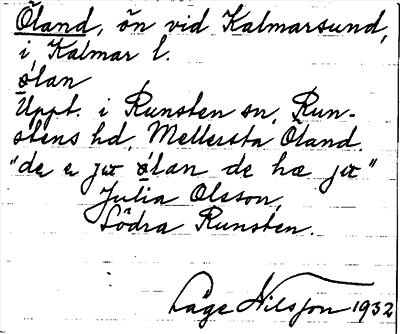 Öland, ön vid Kalmarsund,
i Kalmar l.
ølan
Uppt. i Runsten sn, Run-
stens hd, Mellersta Öland.
"de e jæ ølan de hæ jæ"
Julia Olsson,
Södra Runsten.
Låge Nilsson 1932